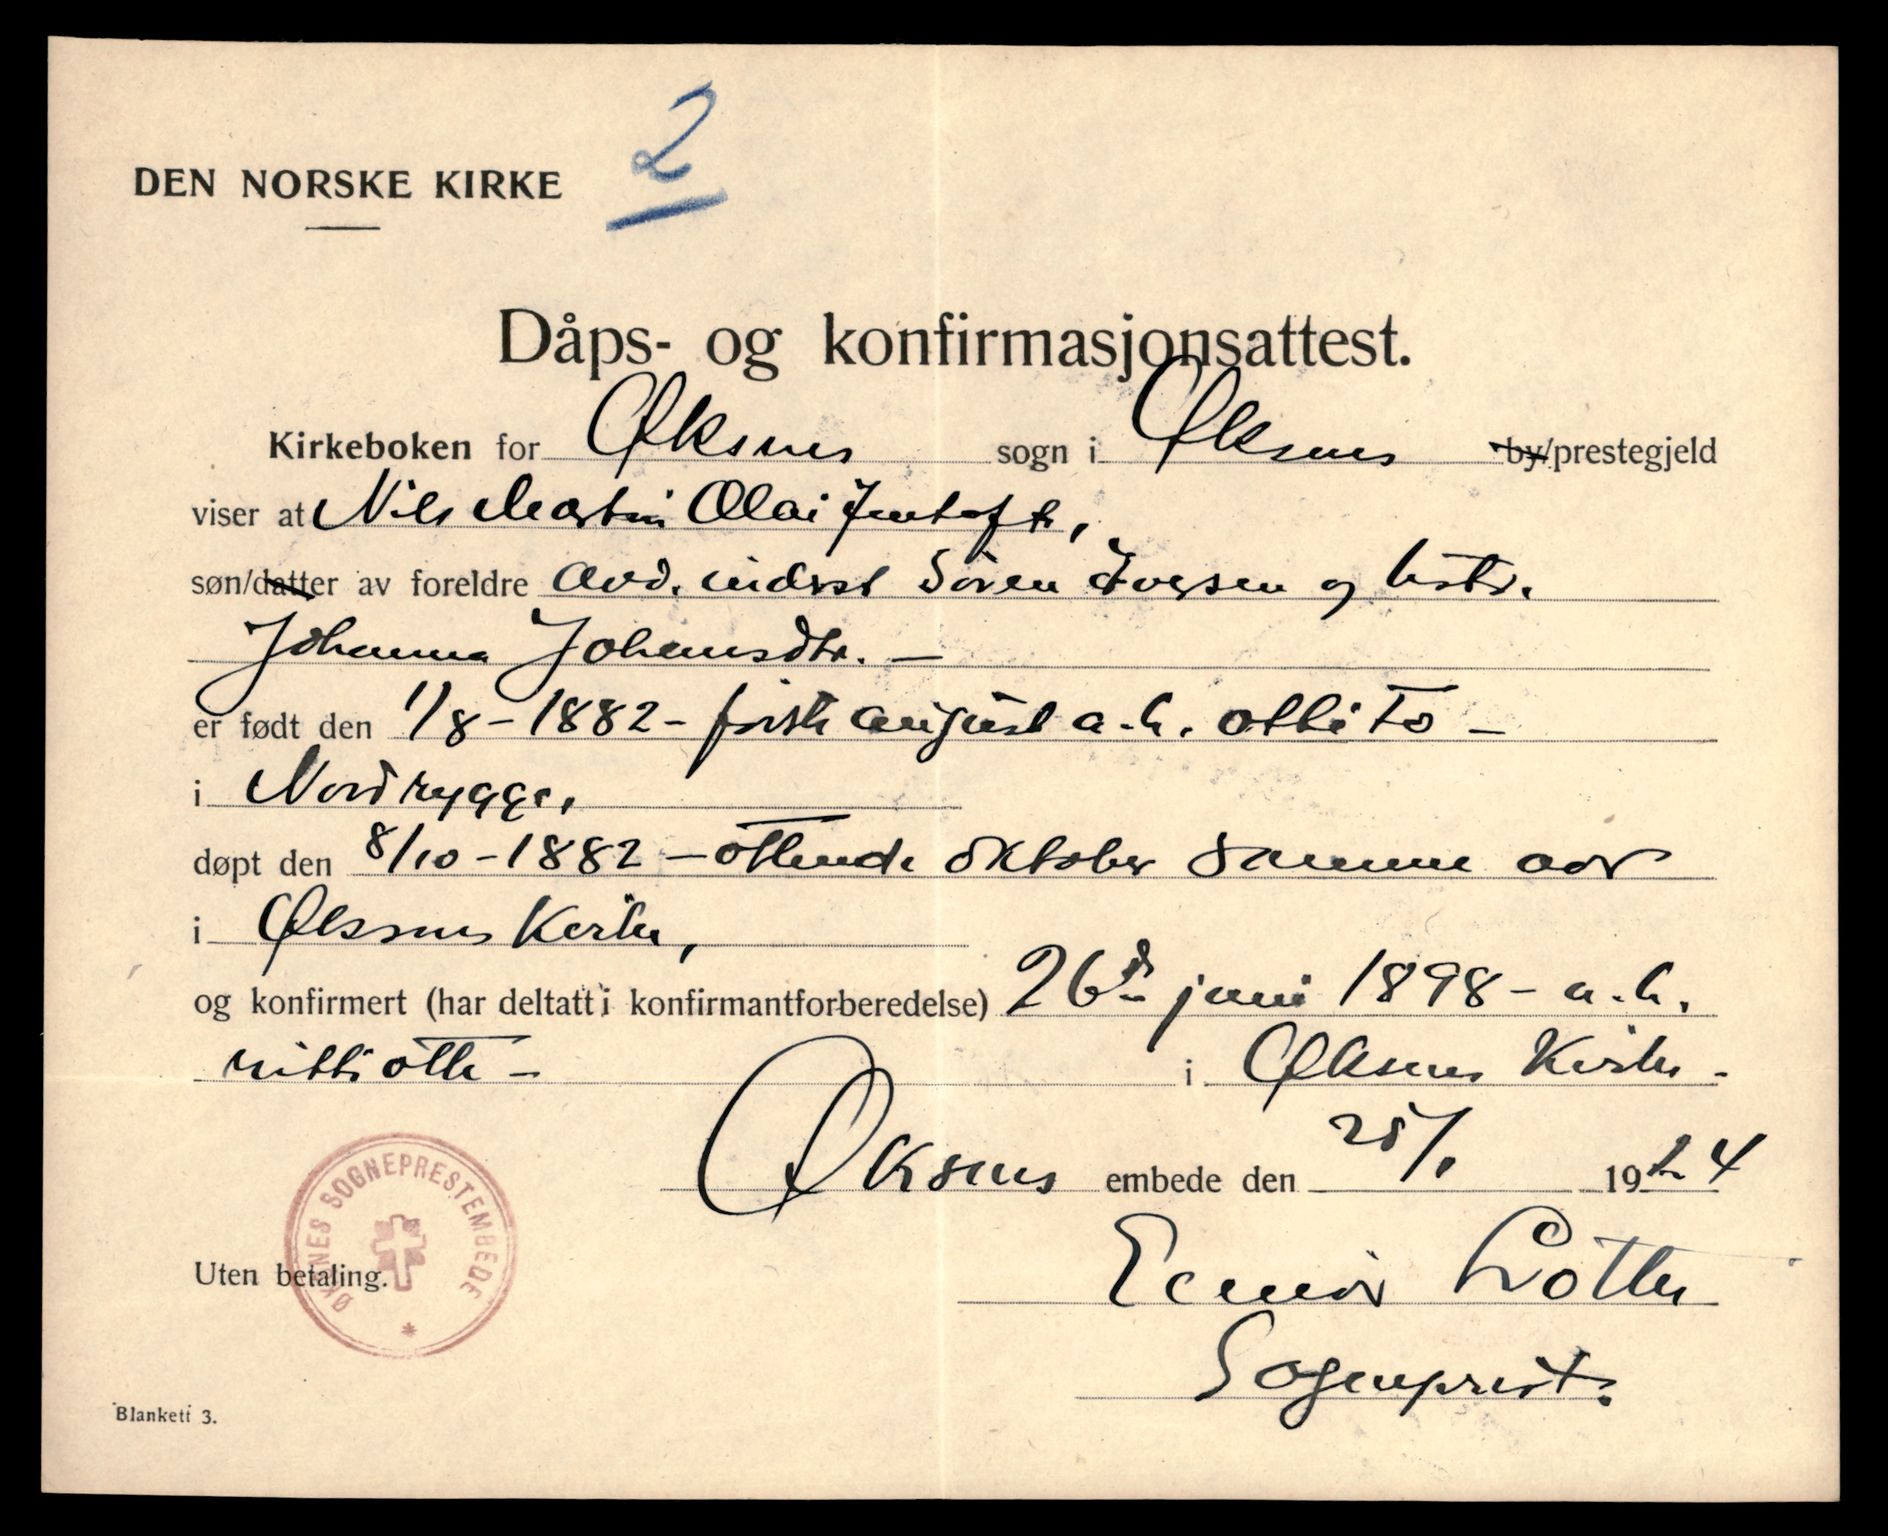 2
DEN NORSKE KIRKE
Dåps- og konfirmasjonsattest.
Kirkeboken for Øksnes sogn i Øksnes by/prestegjeld
viser at Nils Martin Olai Jentoft,
søn/datter av foreldre avd. inderst Sören Iversen og hstr.
Johanna Johansdtr. —
er født den 1/8 - 1882 - första august a.h. otti to —
i Nordrygge,
døpt den 8/10 - 1882 — ottende oktober samme aar
i Øksnes Kirke,
og konfirmert (har deltatt i konfirmantforberedelse) 26de juni 1898 - a.h.
nitti otte — i Øksnes Kirke -
Øksnes embede den 25/1 1924
Sogneprest.
ØKSNES SOGNEPRESTEMBEDE
Uten betaling.
Blankett 3.